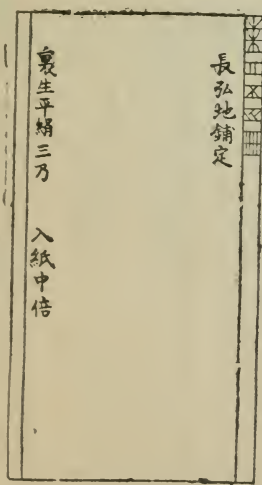 長弘地鋪定
裏生平絹三乃 入紙中倍